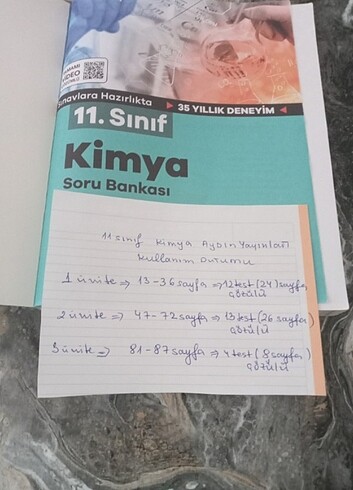 VİDEO
Sınavlara Hazırlıkta
35 YILLIK DENEYİM
11. Sınıf
Kimya
Soru Bankası
11 sınıf Kimya Aydın Yayınları
Kullanım Durumu
1 ünite => 13-36 sayfa => 12 test (24) sayfa
çözülü
2 ünite => 47-72 sayfa => 13 test (26 sayfa)
çözülü
3 ünite => 81-87 sayfa => 4 test (8 sayfa)
çözülü